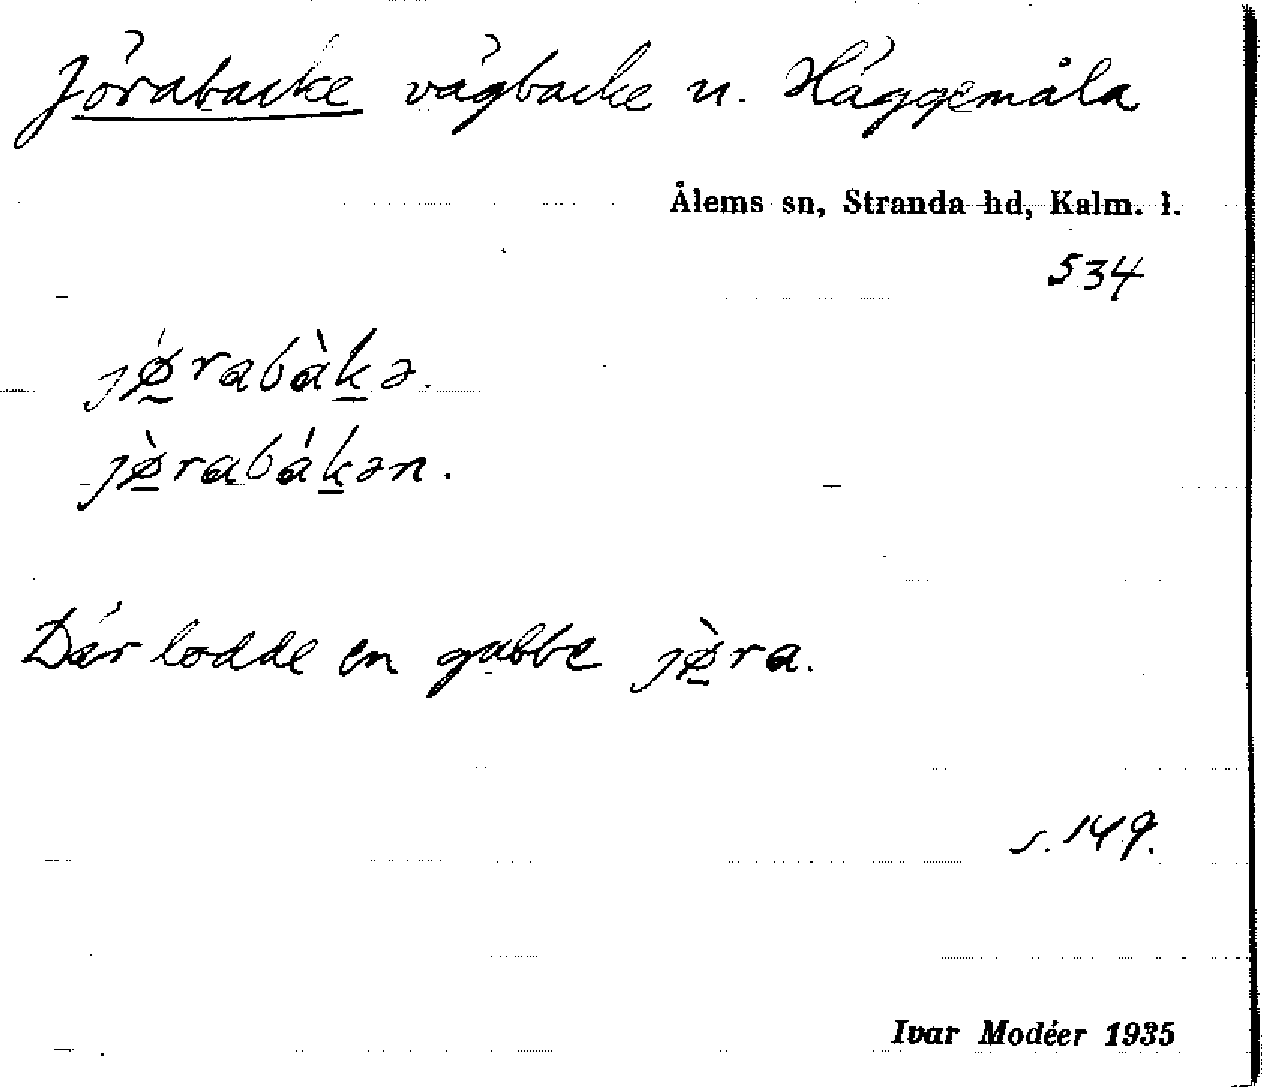 Jörabacke vägbacke n. Häggemåla
Ålems sn, Stranda hd, Kalm. l.
534
jǿ̱rabàḵə.
jø̱̀rabáḵən.
Där bodde en gubbe jø̱̀ra.
s. 149.
Ivar Modéer 1935